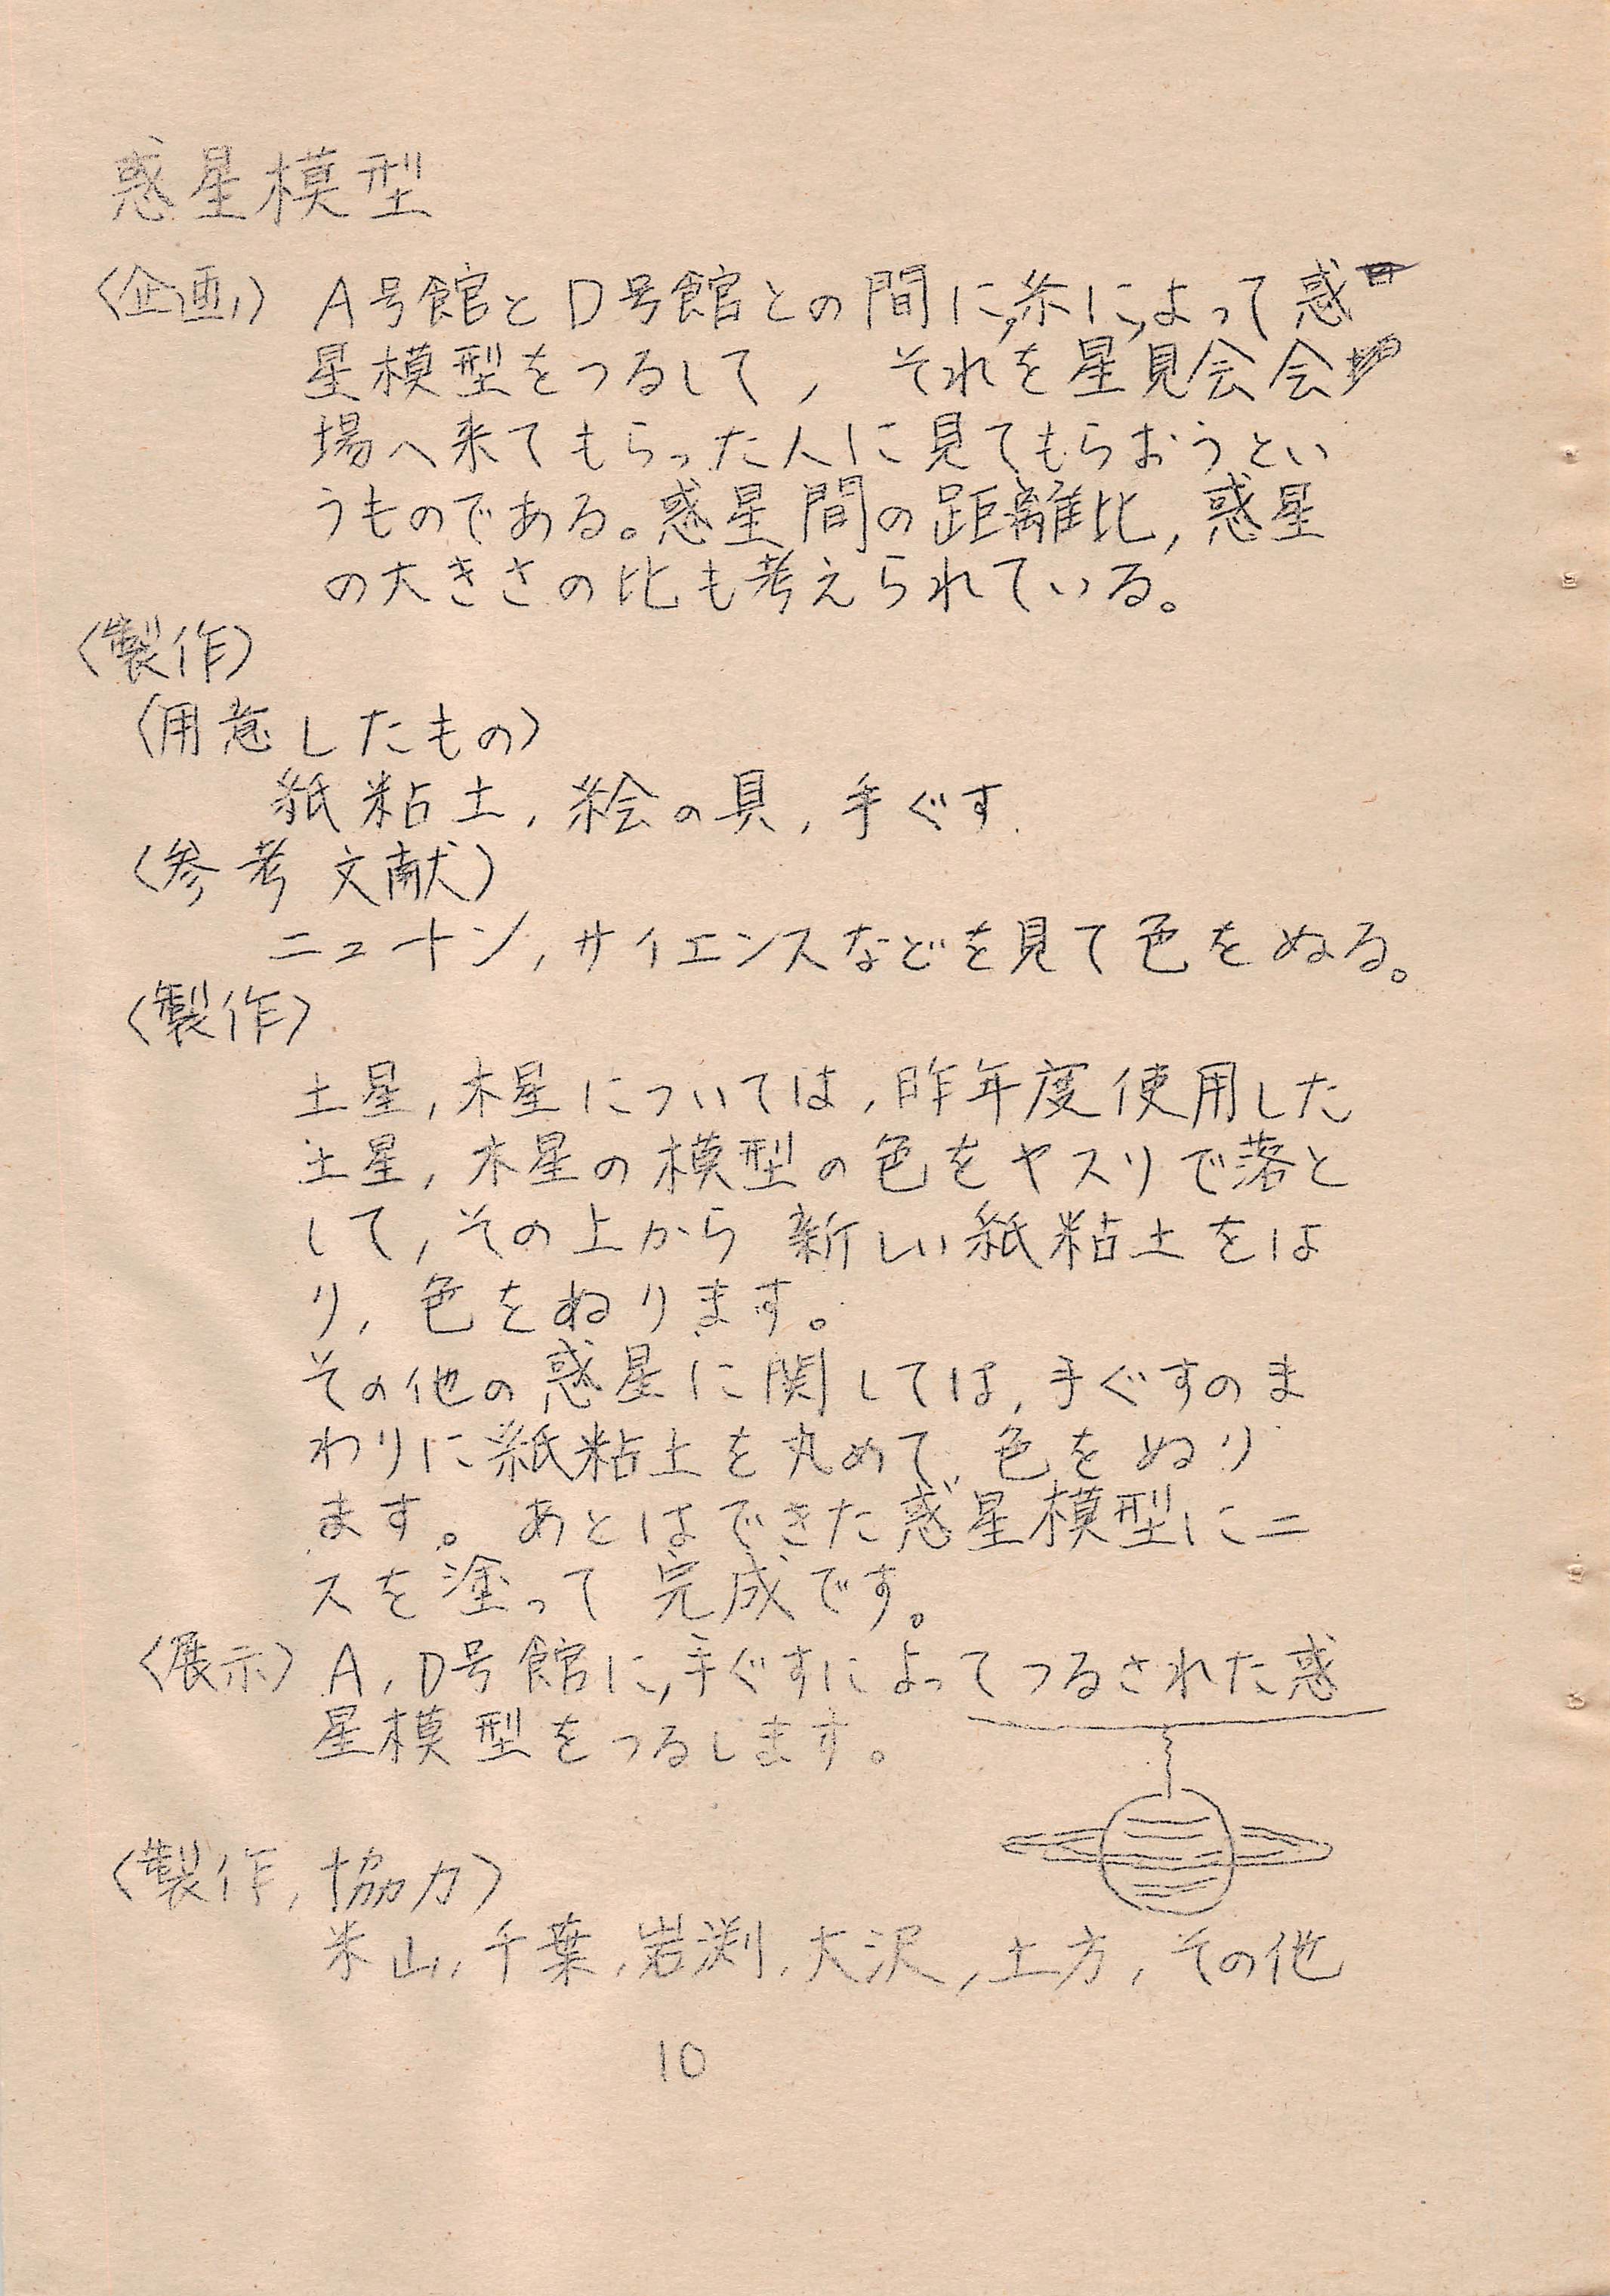 惑星模型
〈企画〉 A号館とD号館との間に,糸によって惑
星模型をつるして, それを星見会会
場へ来てもらった人に見てもらおうとい
うものである。惑星間の距離比,惑星
の大きさの比も考えられている。
〈製作〉
〈用意したもの〉
紙粘土,絵の具,手ぐす.
〈参考文献〉
ニュートン,サイエンスなどを見て色をぬる。
〈製作〉
土星,木星については,昨年度使用した
土星,木星の模型の色をヤスリで落と
して,その上から新しい紙粘土をは
り,色をぬります。
その他の惑星に関しては,手ぐすのま
わりに紙粘土を丸めて,色をぬり
ます。あとはできた惑星模型にニ
スを塗って完成です。
〈展示〉 A,D号館に,手ぐすによってつるされた惑
星模型をつるします。
〈製作,協力〉
米山,千葉,岩渕,大沢,土方,その他
10